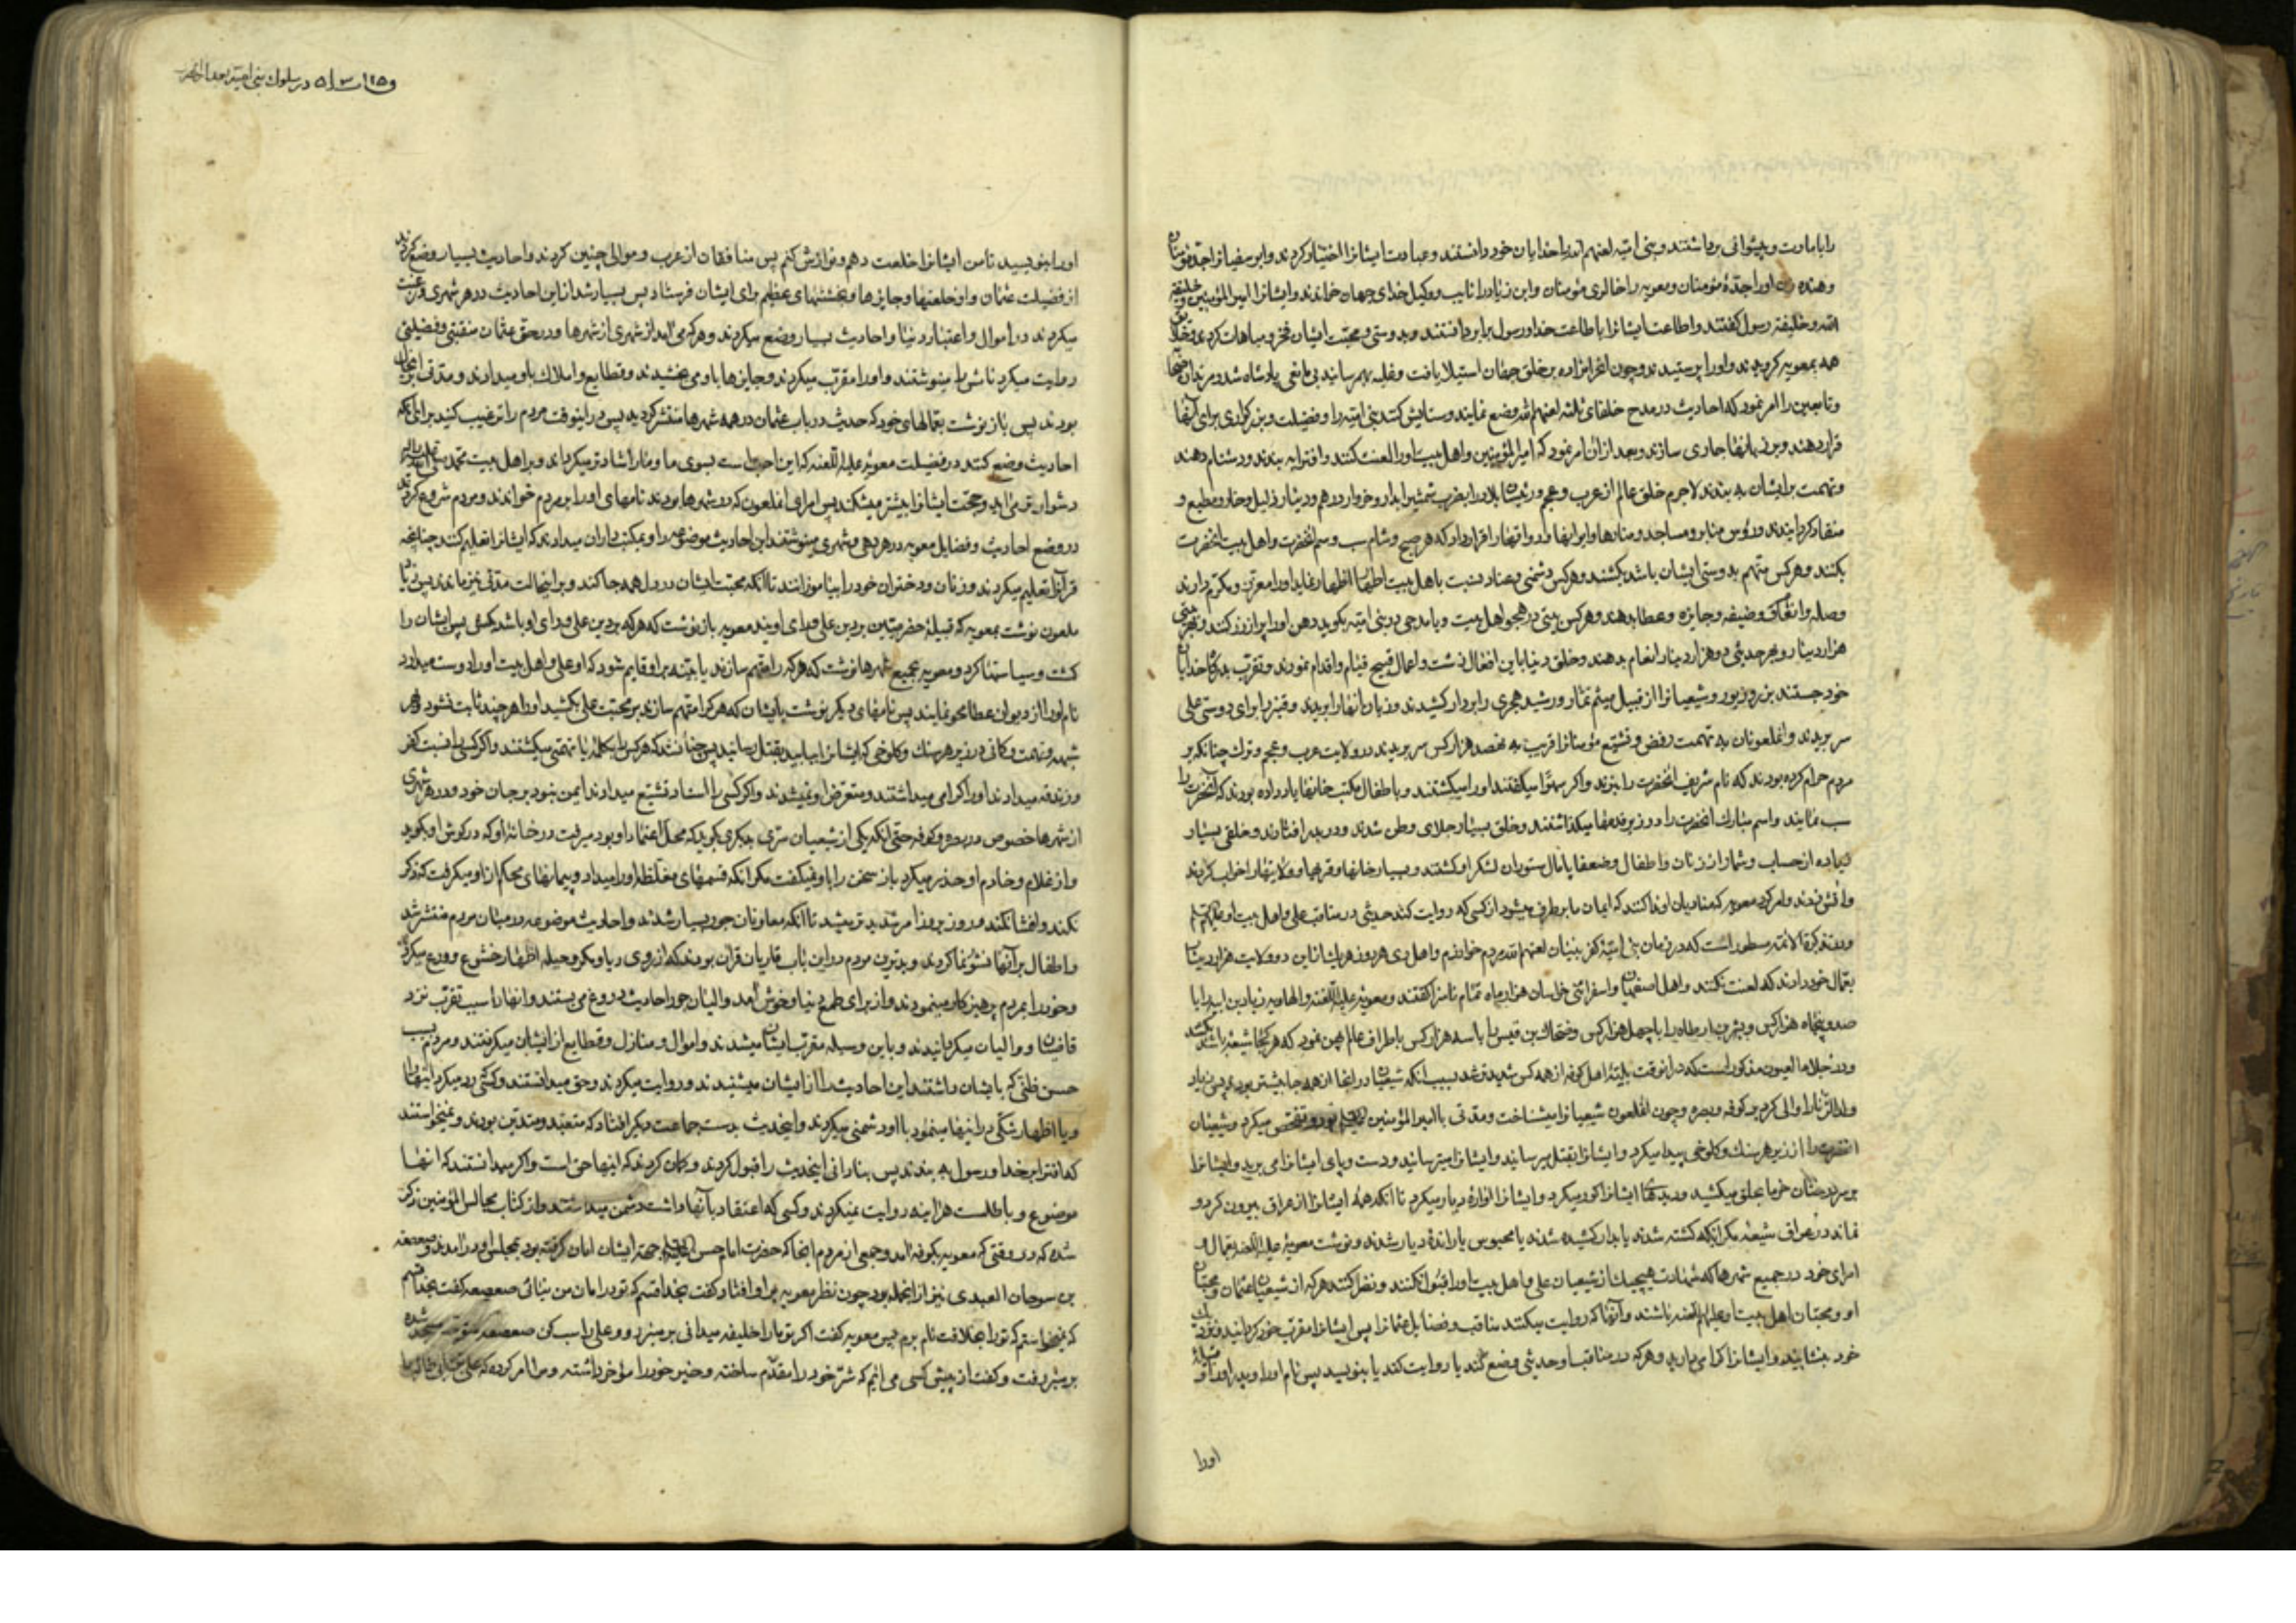 را بامارت و پیشوائی برداشتند و بنی امیه لعنهم الله را خدایان خود دانستند و عبادت ایشانرا اختیار کردند و ابوسفیانرا جد مؤمنان
و هنده را جدّهٔ مؤمنان و معویه را خالوی مؤمنان و ابن زیاد را نایب و وکیل خدای جهان خواندند و ایشانرا امیر المؤمنین و خلیفة
الله و خلیفهٔ رسول گفتند و اطاعت ایشانرا باطاعت خدا و رسول برابر دانستند و بدوستی و محبت ایشان فخر و مباهات کردند
همه بمعویه گرویدند و او را پرستیدند و چون بر خلق جهان استیلا یافت و غلبه بهم رسانید بی مانعی پادشاه شد
و تابعین را امر نمود که احادیث در مدح خلفای ثلثه لعنهم الله وضع نمایند و ستایش کنند بنی امیه را و فضیلت و بزرگواری برای آنها
قرار دهند و بر زبانها جاری سازند و بعد از آن امر نمود که امیرالمؤمنین و اهل بیت او را لعنت کنند و افترا به بندند و دشنام دهند
و تهمت بر ایشان به بندند لاجرم خلق عالم از عرب و عجم و رئیسان بلاد را بضرب شمشیر آبدار و خروار درهم و دینار ذلیل و خار و مطیع و
منقاد گردانیدند و رؤس منابر و مساجد و منارها و ایوانها و رواقها را قرار داد که هر صبح و شام سب و شتم آنحضرت و اهل بیت آنحضرت
بکنند و هر کس متهم بدوستی ایشان باشد بکشند و هر کس دشمنی و عناد نسبت باهل بیت اطهار اظهار نماید او را معزز و مکرم دارند
وصله و انفاق و ضیفه و جایزه و عطا بدهند و هر کس بیتی در هجو اهل بیت و یا مدحی در بنی امیه بگوید دهن او را پر از زر کنند
هزار دینار و بهر حدیثی دو هزار دینار انعام بدهند و خلق دنیا باین افعال زشت و اعمال قبیح قیام و اقدام نمودند و تقرب
خود جستند بزر و زیور و شیعیانرا از قبیل میثم تمار و رشید هجری را بردار کشیدند و زبان آنها را بریدند و قنبر را برای دوستی علی
سر بریدند و آنملعونان به تهمت رفض و تشیع مؤمنانرا قریب به هفصد هزار کس سر بریدند در ولایت عرب و عجم و ترک چنانکه بر
مردم حرام کرده بودند که نام شریف آنحضرت را ببرند و اگر سهوا میگفتند او را میکشتند و باطفال مکتب خانها یاد داده بودند که آنحضرت را
سب نمایند و اسم مبارک آنحضرت را در زیر قدمها میگذاشتند و خلق بسیار جلای وطن شدند و در بدر افتادند و خلقی بسیار
زیاده از حساب و شمار از زنان و اطفال و ضعفا پامال ستوران لشکر او گشتند و بسیار خانها و قریها و ولایتها را خراب کردند
و آتش زدند و امر کرد معویه که منادیان او ندا کنند که ایمان ما بر طرف میشود از کسی که روایت کند حدیثی در مناقب علی و اهل بیت او
و در تذکرة الائمه مسطور است که در زمان بنی امیه کفر بنیان لعنهم الله مردم خوارزم و اهل ری هر روز هر یک از این دو ولایت هزار دینار
بعمال خود دادند که لعنت نکنند و اهل اصفهان و اسفراین خراسان هزار ماه تمام ناسزا گفتند و معویه علیه اللعنه و الهاویه زیاد بن ابیه را با
صد و پنجاه هزار کس و بشر بن ارطاه را با چهل هزار کس و ضحاک بن قیس را با سه هزار کس باطراف عالم پهن نمود که هر کجا شیعه باشد بکشند
و در جلاء العیون مذکور است که در آنوقت بلیهٔ اهل کوفه از همه کس شدیدتر شد بسبب آنکه شیعیان در آنجا از همه جا بیشتر بودند پس زیاد
ولد الزنا را والی کرد بر کوفه و بصره و چون آنملعون شیعیانرا میشناخت و مدتی با امیر المؤمنین بود و تفحص میکرد و شیعیان
آنحضرت را از زیر هر سنگ و کلوخی پیدا میکرد و ایشانرا بقتل میرسانید و ایشانرا میترسانید و دست و پای ایشانرا می برید و ایشانرا
بر سر درختان خرما بحلق میکشید و دیدهای ایشانرا کور میکرد و ایشانرا آوارهٔ دیار میکرد تا آنکه همه ایشانرا از عراق بیرون کرد و
نماند در عراق شیعه مگر آنکه کشته شدند یا بدار کشیده شدند یا محبوس یا راندهٔ دیار شدند و نوشت معویه علیه اللعنه بعمال و
امرای خود در جمیع شهرها که شهادت هیچیک از شیعیان علی و اهل بیت او را قبول نکنند و نظر کنند هر که از شیعیان عثمان و محبان
او و محبان اهل بیت او علیهم اللعنه باشند و آنها که روایت میکنند مناقب و فضایل عثمانرا پس ایشانرا مقرب خود گردانید و نزدیک
خود بنشانید و ایشانرا گرامی دارید و هر که در مناقب او حدیثی وضع کند یا روایت کند یا بنویسد پس نام او را و پدر او را و قبیلهٔ
او را
در سلوک بنی امیه بعد از
او را بنویسید تا من ایشانرا خلعت دهم و نوازش کنم پس منافقان از عرب و موالی چنین کردند و احادیث بسیار وضع کردند
از فضیلت عثمان و او خلعتها و جایزها و بخششهای عظیم برای ایشان فرستاد پس بسیار شد از این احادیث در هر شهری و رغبت
میکردند در اموال و اعتبار دنیا و احادیث بسیار وضع میکردند و هر که می آمد از شهری از شهرها و در حق عثمان منقبتی و فضیلتی
روایت میکرد نامش را مینوشتند و او را مقرب میکردند و جایزها باو می بخشیدند و قطایع و املاک باو میدادند و مدتی بر اینحال
بودند پس باز نوشت بعمالهای خود که حدیث در باب عثمان در همه شهرها منتشر گردید پس در اینوقت مردم را ترغیب کنید برای آنکه
احادیث وضع کنند در فضیلت معویه علیه اللعنه که این احب است بسوی ما و ما را شادتر میگرداند و بر اهل بیت محمد
دشوارتر می آید و حجت ایشانرا بیشتر میشکند پس امرای آنملعون که در شهرها بودند نامهای او را بر مردم خواندند و مردم شروع کردند
در وضع احادیث و فضایل معویه در هر دهی و شهری مینوشتند این احادیث موضوعه را و بمکتب داران میدادند که ایشانرا تعلیم کنند چنانچه
قرآنرا تعلیم میکردند و زنان و دختران خود را بیاموزانند تا آنکه محبت ایشان در دل همه جا کند و بر اینحالت مدتی نیز ماندند پس زیاد
ملعون نوشت بمعویه که قبیلهٔ حضرمیین بر دین علی و رای اویند معویه باز نوشت که هر که بر دین علی و رای او باشد بکش پس ایشان را
کشت و سیاستها کرد و معویه بجمیع شهرها نوشت که هر که را متهم سازند یا بینه بر او قایم شود که او علی و اهل بیت او را دوست میدارد
نام او را از دیوان عطا محو نمایند پس نامهای دیگر نوشت بایشان که هر که را متهم سازند بر محبت علی بکشید او را هر چند ثابت نشود
شبهه و تهمت و گمانی در زیر هر سنگ و کلوخی که ایشانرا بیابید بقتل رسانید پس چنان شد که هر کس را بکلمه یا تهمتی میکشتند و اگر کسی را نسبت کفر
و زندقه میدادند او را گرامی میداشتند و متعرض او نمیشدند و اگر کسی را اسناد تشیع میدادند ایمن نبود بر جان خود و در هر شهری
از شهرها خصوص در بصره و کوفه حتی آنکه یکی از شیعیان سرّی بدیگری بگوید که محل اعتماد او بود میرفت در خانهٔ او که در گوش او بگوید
و از غلام و خادم او حذر میکرد باز سخن را باو نمیگفت مگر آنکه قسمهای مغلظه او را میداد و پیمانهای محکم از او میگرفت که ذکر
نکند و افشا نکند و روز بروز امر شدیدتر میشد تا آنکه معاونان جور بسیار شدند و احادیث موضوعه در میان مردم منتشر شد
و اطفال بر آنها نشو نما کردند و بدترین مردم در این باب قاریان قرآن بودند که از روی ریا و مکر و حیله اظهار خشوع و ورع میکردند
و خود را بمردم پرهیزکار مینمودند و از برای طمع دنیا و خوش آمد والیان جور احادیث دروغ می بستند و آنها را سبب تقرب نزد
قاضیان و والیان میگردانیدند و باین وسیله مقرب ایشان میشدند و اموال و منازل و قطایع از ایشان میگرفتند و مردم بسبب
حسن ظنی که بایشان داشتند این احادیث را از ایشان میشنیدند و روایت میکردند و حق میدانستند و کسی که رد میکرد اینها را
و یا اظهار شکی در اینها مینمود با او دشمنی میکردند و اینحدیث بدست جماعت دیگر افتاد که متعبد و متدین بودند و نمیخواستند
که افترا بر خدا و رسول به بندند پس بنادانی اینحدیث را قبول کردند و گمان کردند که اینها حق است و اگر میدانستند که آنها
موضوع و باطلست هرآینه روایت نمیکردند و کسی که اعتقاد بآنها داشت دشمن میداشتند و از کتاب مجالس المؤمنین ذکر
شده که در وقتی که معویه بکوفه آمد و جمعی از مردم آنجا که حضرت امام حسن جهة ایشان امان گرفته بود بمجلس او در آمدند و صعصعه
بن سوحان العبدی نیز از آنجمله بود چون نظر معویه بر او افتاد گفت بخدا قسم که تو در امان من میائی صعصعه گفت بخدا قسم
که نمیخواستم که تو را بخلافت نام برم پس معویه گفت اگر تو مارا خلیفه میدانی بر منبر رو و علی را سب کن صعصعه متوجه مسجد شده
بر منبر رفت و گفت از پیش کسی می آیم که شرّ خود را مقدّم ساخته و خیر خود را مؤخر داشته و مرا امر کرده که علی